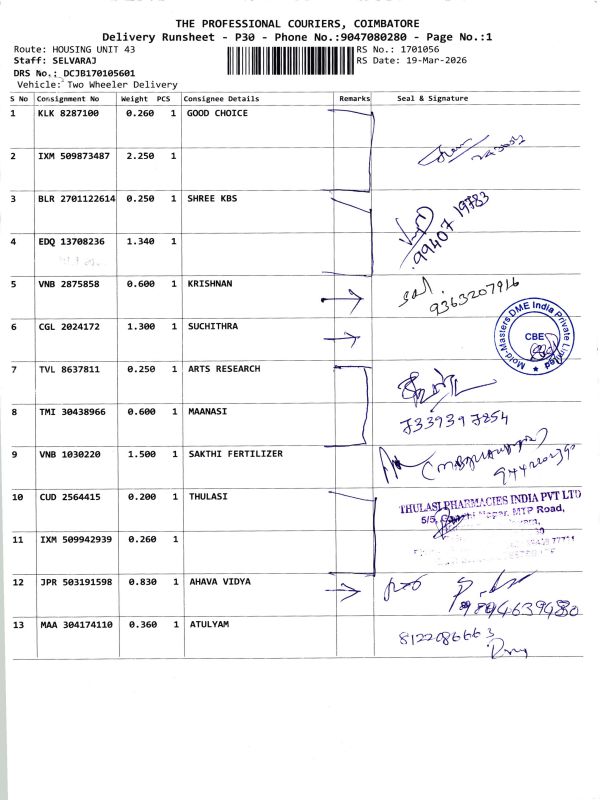 THE PROFESSIONAL COURIERS, COIMBATORE
Delivery Runsheet - P30 - Phone No.:9047080280 - Page No.:1
Route: HOUSING UNIT 43 RS No.: 1701056
Staff: SELVARAJ RS Date: 19-Mar-2026
DRS No.: DCJB170105601
Vehicle: Two Wheeler Delivery
S No Consignment No Weight PCS Consignee Details Remarks Seal & Signature
1 KLK 8287100 0.260 1 GOOD CHOICE
2 IXM 509873487 2.250 1
3 BLR 2701122614 0.250 1 SHREE KBS
99407 19783
4 EDQ 13708236 1.340 1
5 VNB 2875858 0.600 1 KRISHNAN
9363207916
6 CGL 2024172 1.300 1 SUCHITHRA
Mold-Masters DME India Private Limited
CBE
7 TVL 8637811 0.250 1 ARTS RESEARCH
8 TMI 30438966 0.600 1 MAANASI
7339397254
9 VNB 1030220 1.500 1 SAKTHI FERTILIZER
10 CUD 2564415 0.200 1 THULASI
THULASI PHARMACIES INDIA PVT LTD
5/5, Nagar, MTP Road,
11 IXM 509942939 0.260 1
12 JPR 503191598 0.830 1 AHAVA VIDYA
9894639480
13 MAA 304174110 0.360 1 ATULYAM
8122086663